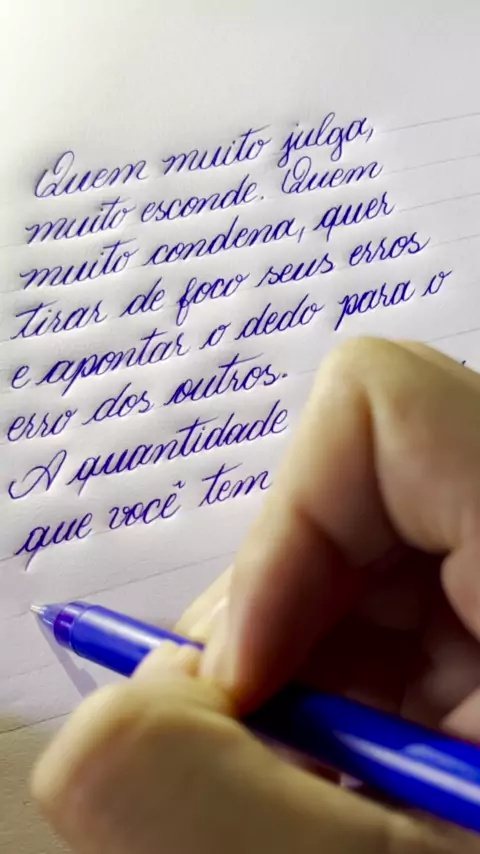 Quem muito julga,
muito esconde. Quem
muito condena, quer
tirar de foco seus erros
e apontar o dedo para o
erro dos outros.
A quantidade
que você tem